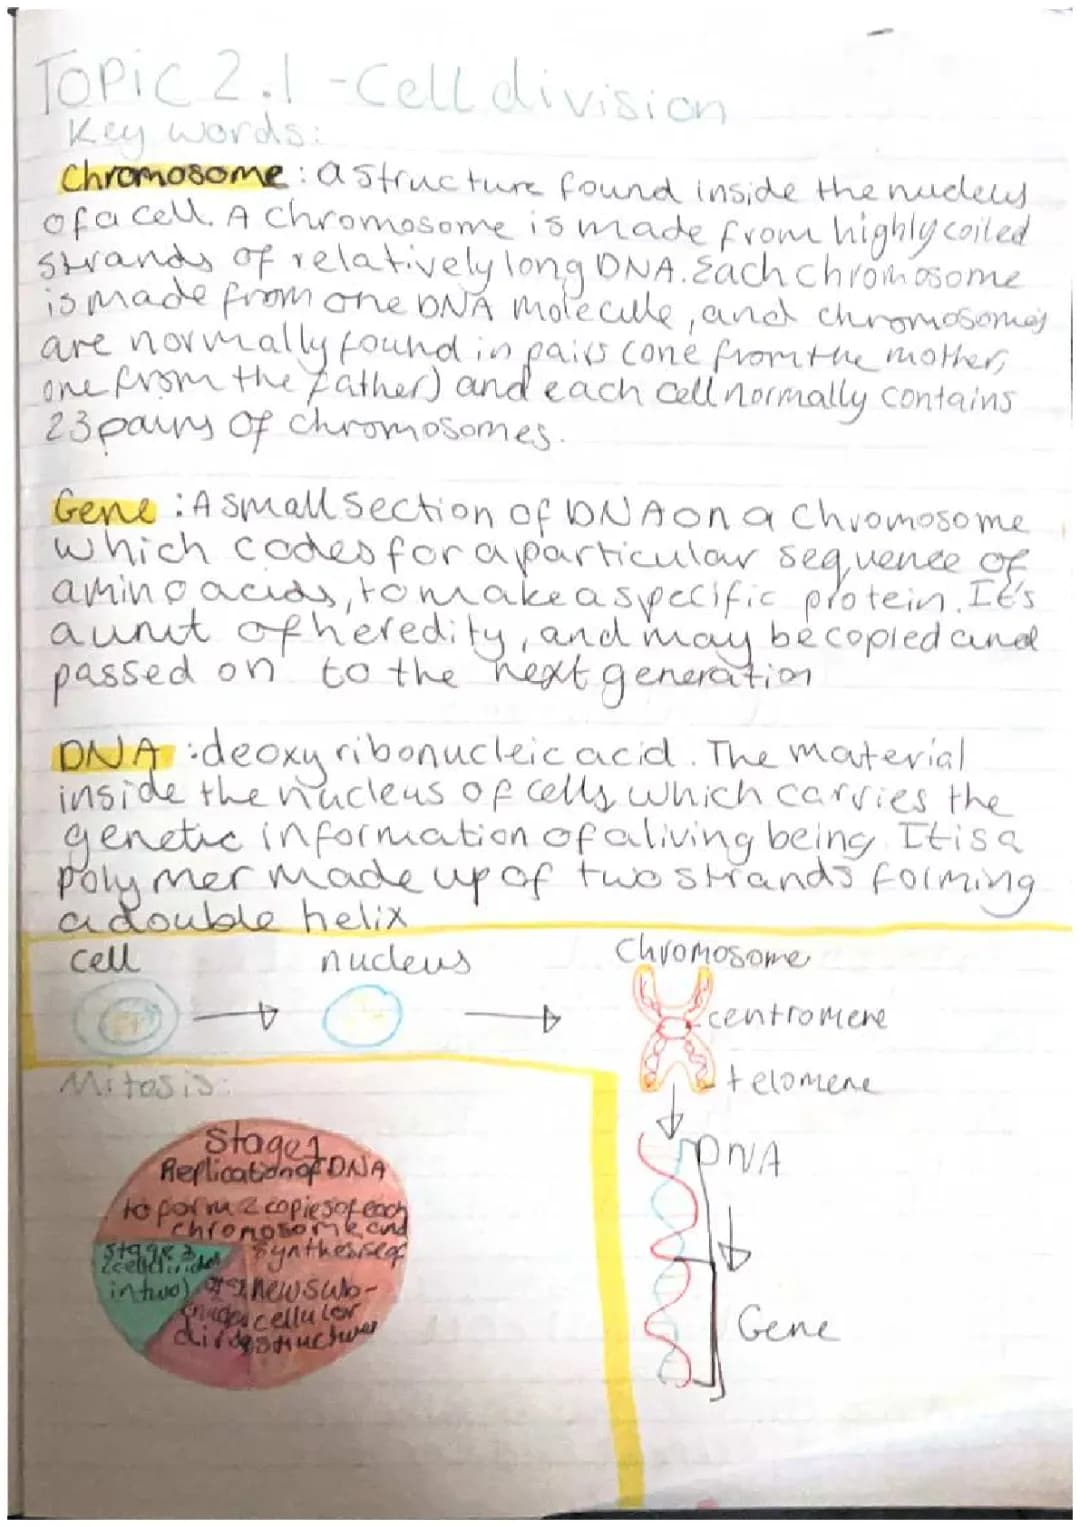 Topic 2.1 - Cell division
Key words:
Chromosome: a structure found inside the nucleus
of a cell. A chromosome is made from highly coiled
strands of relatively long DNA. Each chromosome
is made from one DNA molecule, and chromosomes
are normally found in pairs (one from the mother,
one from the father) and each cell normally contains
23 pairs of chromosomes.
Gene: A small section of DNA on a chromosome
which codes for a particular sequence of
amino acids, to make a specific protein. It's
a unit of heredity, and may be copied and
passed on to the next generation
DNA: deoxyribonucleic acid. The material
inside the nucleus of cells, which carries the
genetic information of a living being. It is a
polymer made up of two strands forming
a double helix
cell
nucleus
Chromosome
centromere
telomere
DNA
Gene
Mitosis:
Stage 1
Replication of DNA
to form 2 copies of each
chromosome and
synthesise of
new sub-
cellular
structures
Stage 3
(cell divides
in two)